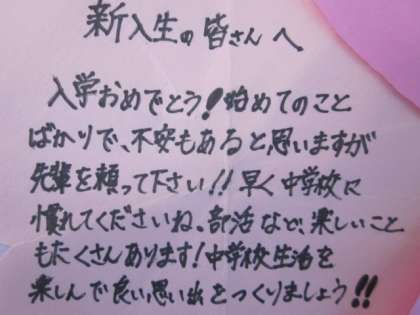 新入生の皆さんへ
入学おめでとう!始めてのこと
ばかりで、不安もあると思いますが
先輩を頼って下さい!!早く中学校に
慣れてくださいね。部活など、楽しいこと
もたくさんあります!中学校生活を
楽しんで良い思い出をつくりましょう!!